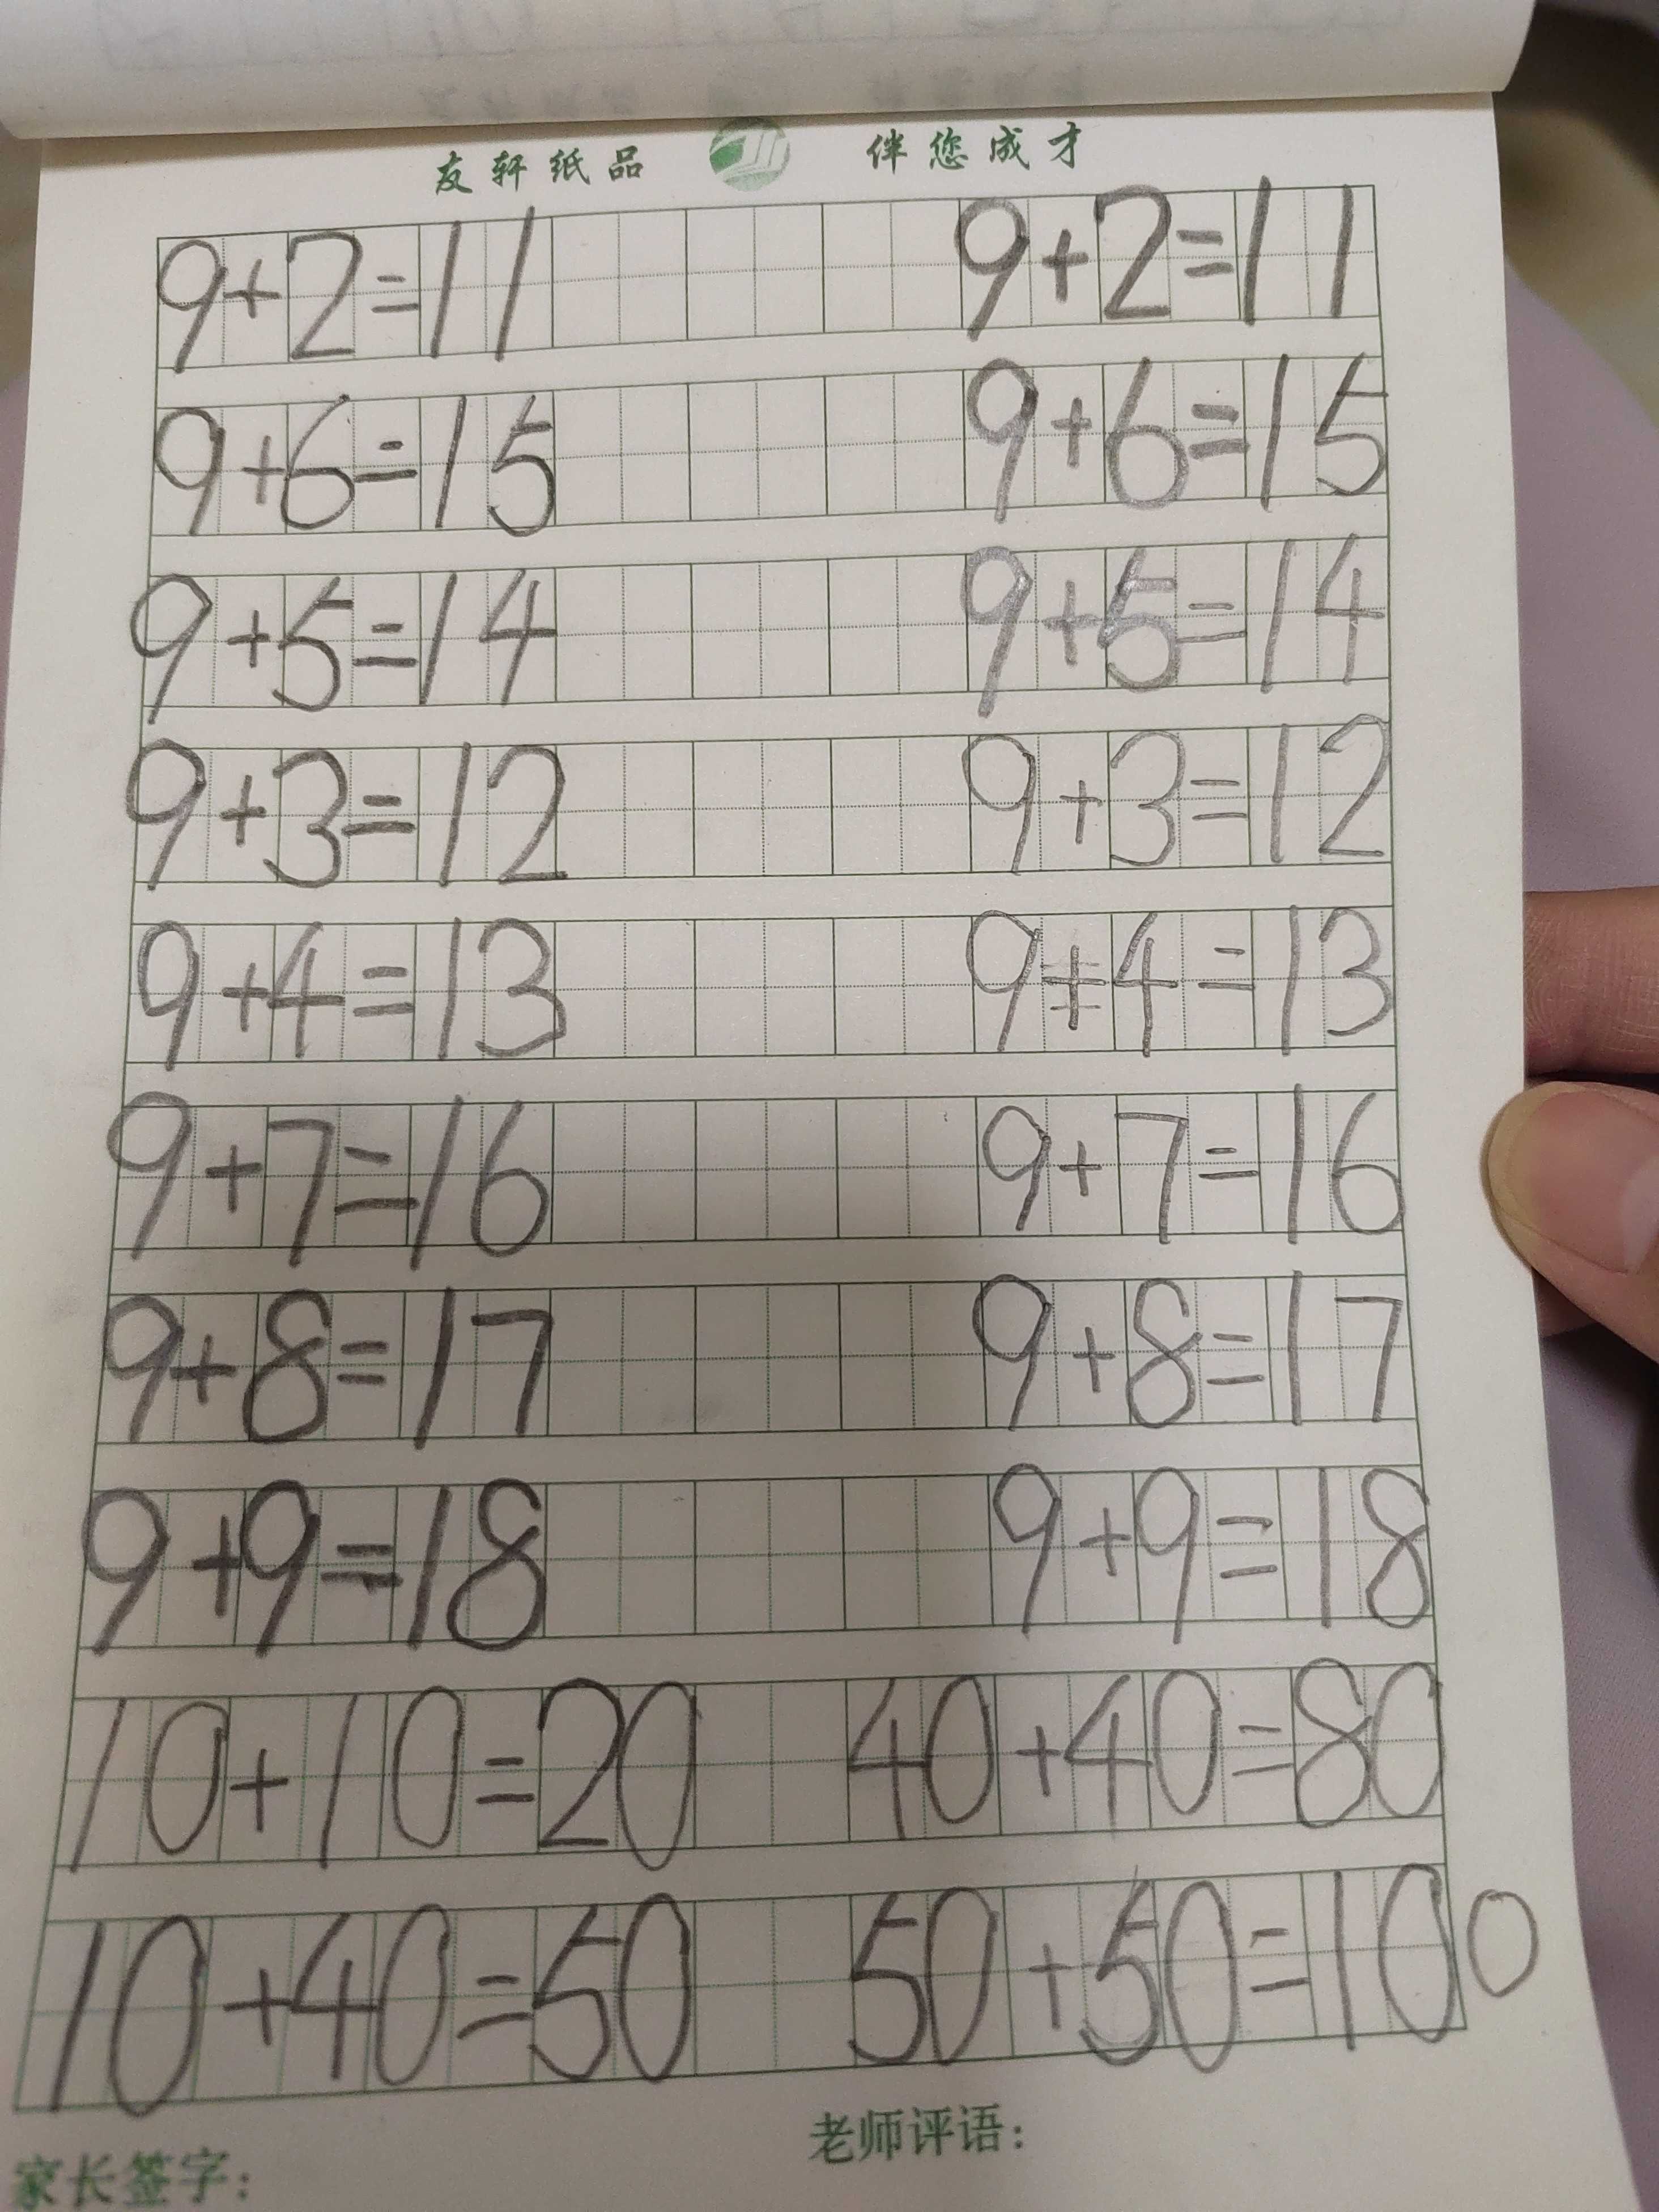 友轩纸品 伴您成才
9+2=11 9+2=11
9+6=15 9+6=15
9+5=14 9+5=14
9+3=12 9+3=12
9+4=13 9+4=13
9+7=16 9+7=16
9+8=17 9+8=17
9+9=18 9+9=18
10+10=20 40+40=80
10+40=50 50+50=100
家长签字: 老师评语: